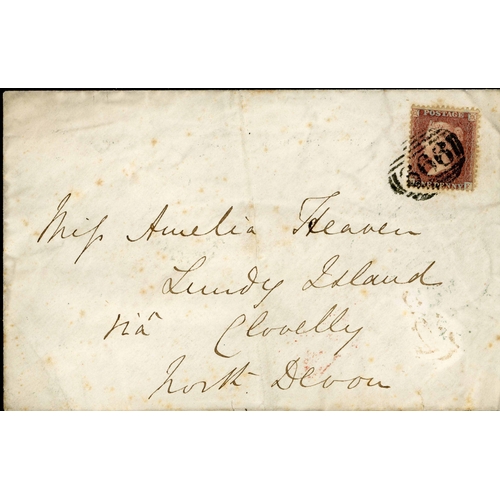 POSTAGE
PENNY
Miss Amelia Heaven
Lundy Island
viâ Clovelly
North Devon